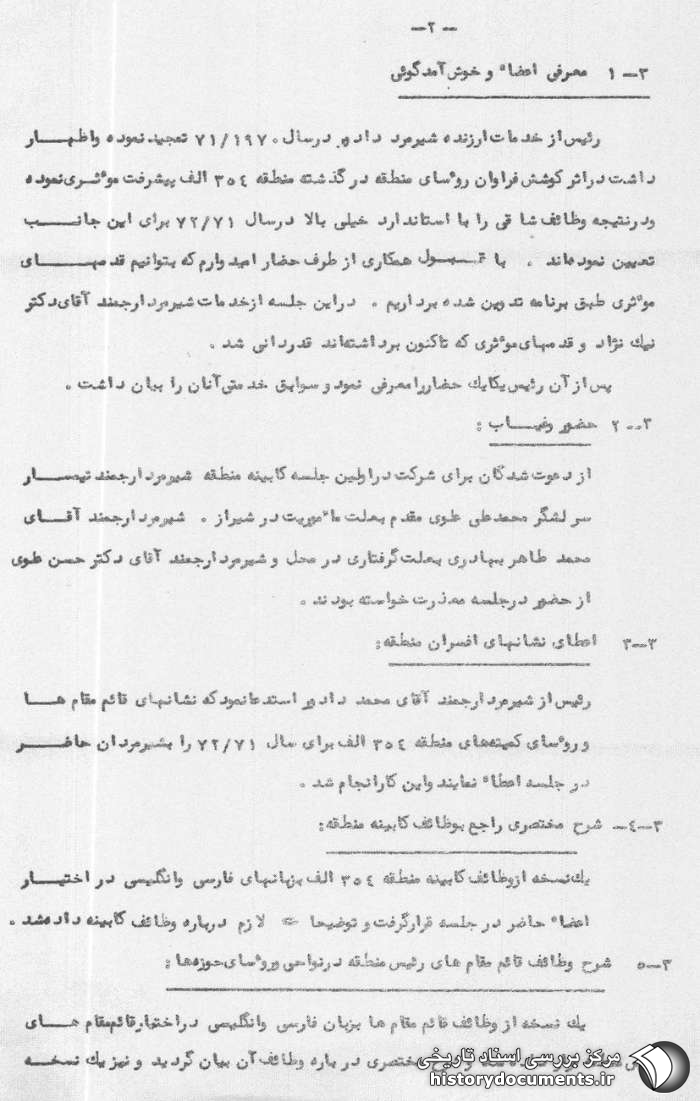 -۲-
۳-۱ معرفی اعضاء و خوش آمدگوئی
رئیس از خدمات ارزنده شیرمرد داور درسال ۷۱/۱۹۷۰ تمجید نموده و اظهار
داشت در اثر کوشش فراوان روسای منطقه در گذشته منطقه ۳۵۴ الف پیشرفت موثری نموده
ودرنتیجه وظائف شاقی را با استاندارد خیلی بالا درسال ۷۲/۷۱ برای این جانب
تعیین نموده‌اند . با قبول همکاری از طرف حضار امیدوارم که بتوانیم قدمهای
موثری طبق برنامه تدوین شده برداریم . دراین جلسه ازخدمات شیرمرد ارجمند آقای دکتر
نیک نژاد و قدمهای موثری که تاکنون برداشته‌اند قدردانی شد .
پس از آن رئیس یکایک حضار را معرفی نمود و سوابق خدمتی آنان را بیان داشت .
۳--۲ حضور وغیاب :
از دعوت شدگان برای شرکت دراولین جلسه کابینه منطقه شیرمرد ارجمند تیمسار
سرلشگر محمدعلی علوی مقدم بعلت ماموریت در شیراز . شیرمرد ارجمند آقای
محمد طاهر بهادری بعلت گرفتاری در محل و شیرمرد ارجمند آقای دکتر حسن علوی
از حضور درجلسه معذرت خواسته بودند .
۳--۳ اعطای نشانهای افسران منطقه :
رئیس از شیرمرد ارجمند آقای محمد داور استدعا نمود که نشانهای قائم مقام ها
و روسای کمیته‌های منطقه ۳۵۴ الف برای سال ۷۲/۷۱ را بشیرمردان حاضر
در جلسه اعطاء نمایند واین کار انجام شد .
۳-۴- شرح مختصری راجع بوظائف کابینه منطقه :
یک نسخه ازوظائف کابینه منطقه ۳۵۴ الف بزبانهای فارسی وانگلیسی در اختیار
اعضاء حاضر در جلسه قرارگرفت و توضیحات لازم درباره وظائف کابینه داده شد .
۳-۵ شرح وظائف قائم مقام های رئیس منطقه درنواحی وروسای حوزه‌ها :
یک نسخه از وظائف قائم مقام ها بزبان فارسی وانگلیسی دراختیار قائم مقام های
مختصری در باره وظائف آن بیان گردید و نیز یک نسخه
مرکز بررسی اسناد تاریخی
historydocuments.ir